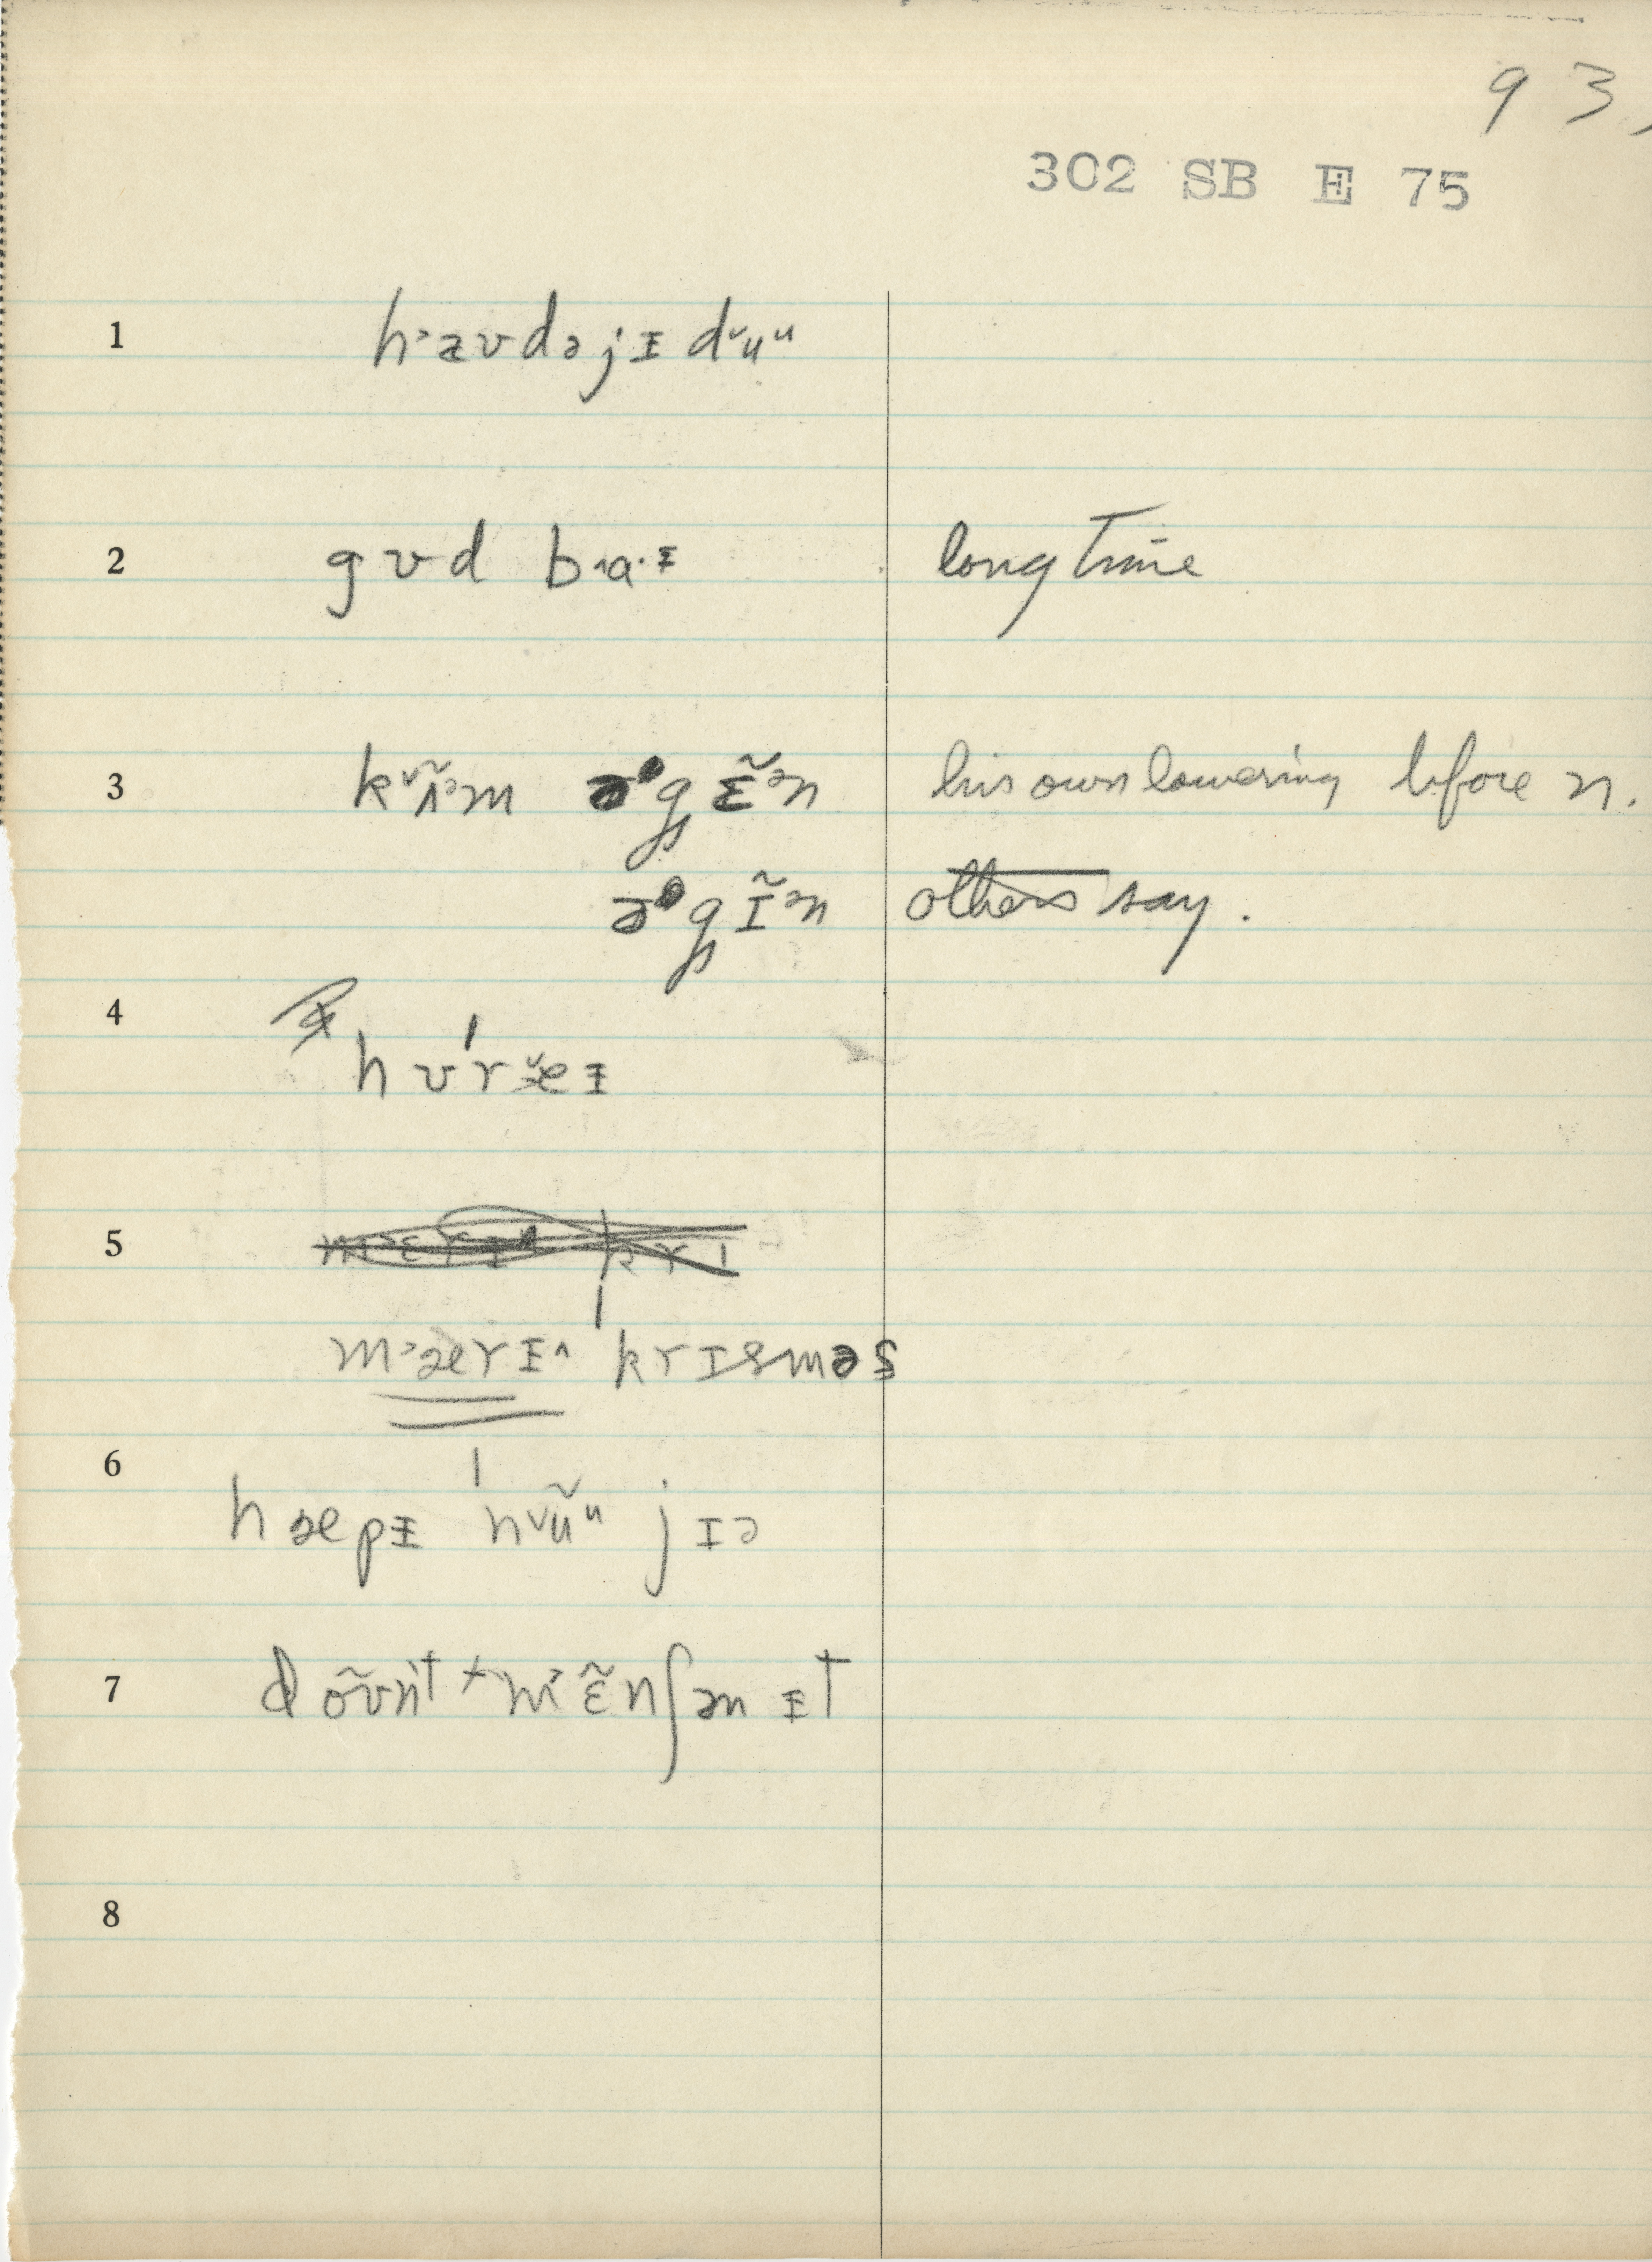 93,
302 SB E 75
1 h˃æʊdəjᵻ d˅uᵘ
2 gʊd b˄a·ᵻ long time
3 k˅ʌ̃ᵊm əgɛ̃ᵊn his own lowering before n.
əgɪ̃ᵊn others say.
4
hʊ'r˅eᵻ
5
m˃ærᵻ^ 'krɪsməs
6
hæpᵻ 'n˅ũᵘ jɪə
7 dõʊnt mɛ̃nʃən ᵻt
8